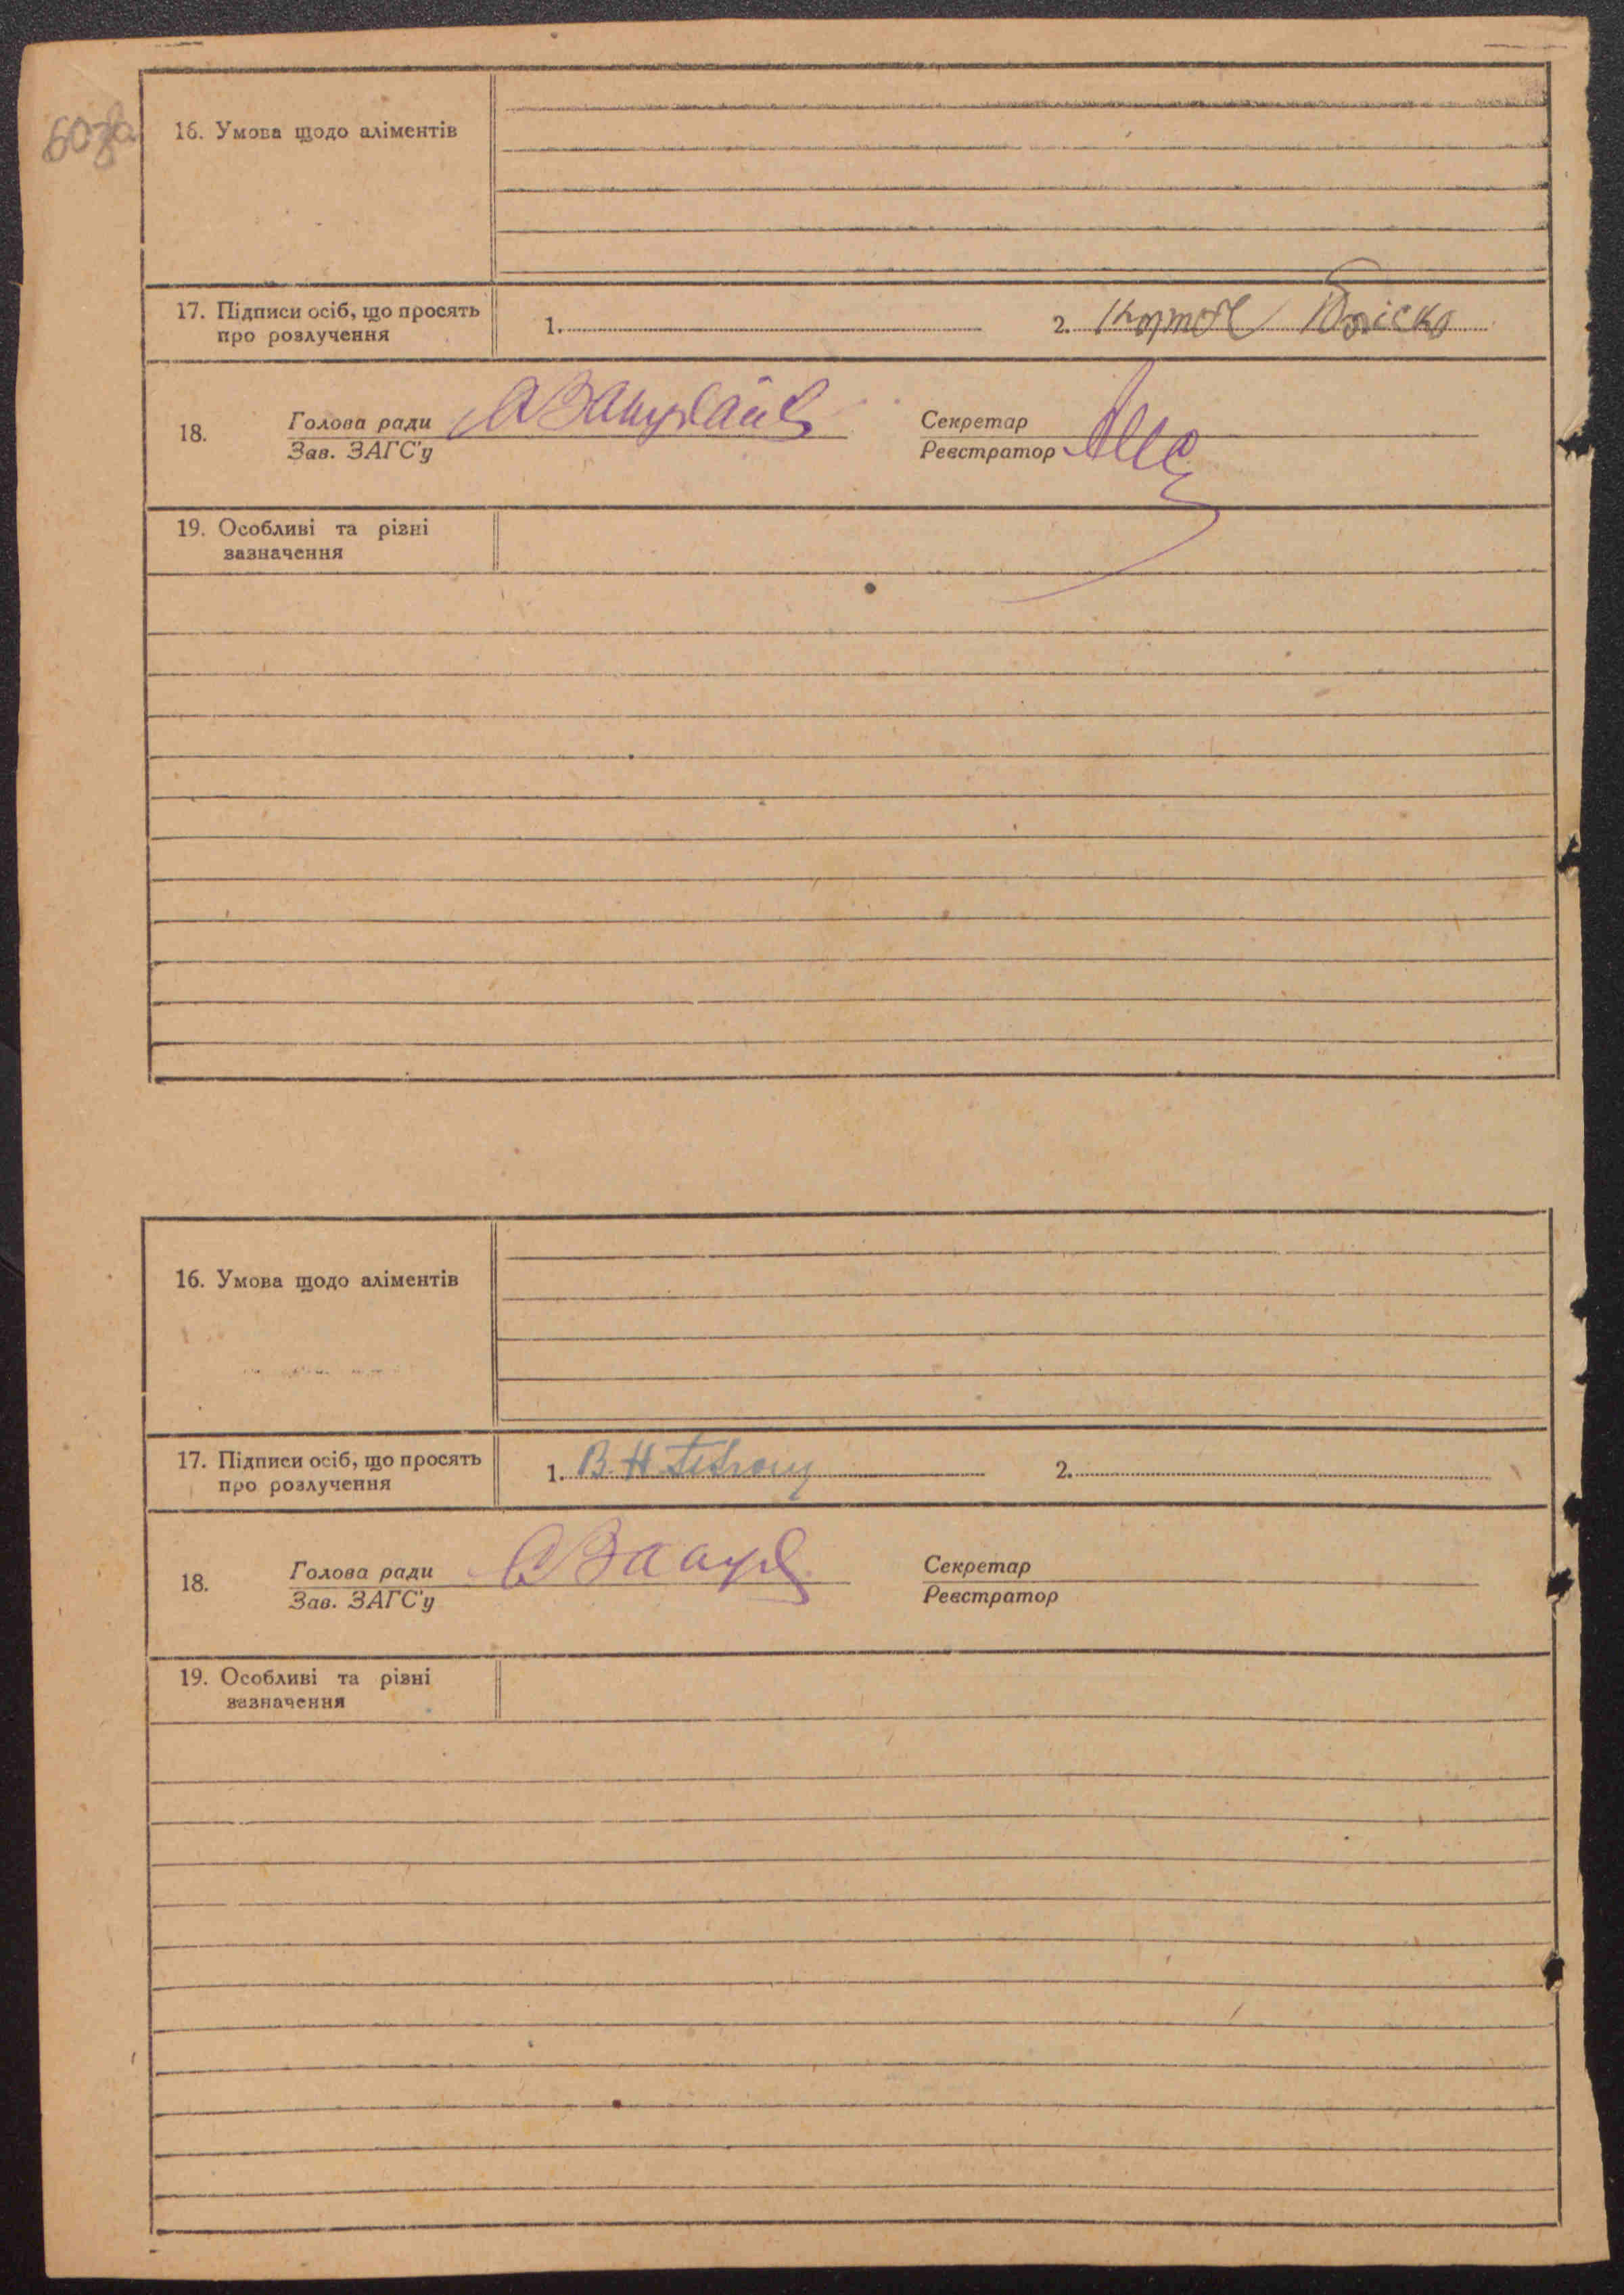 16. Умова щодо аліментів
17. Підписи осіб, що просять
про розлучення
1.
2.
18.
Голова ради
Зав. ЗАГС'у
Секретар
Реєстратор
19. Особливі та різні
зазначення
16. Умова щодо аліментів
17. Підписи осіб, що просять
про розлучення
1. В. Н.
2.
18.
Голова ради
Зав. ЗАГС'у
Секретар
Реєстратор
19. Особливі та різні
зазначення